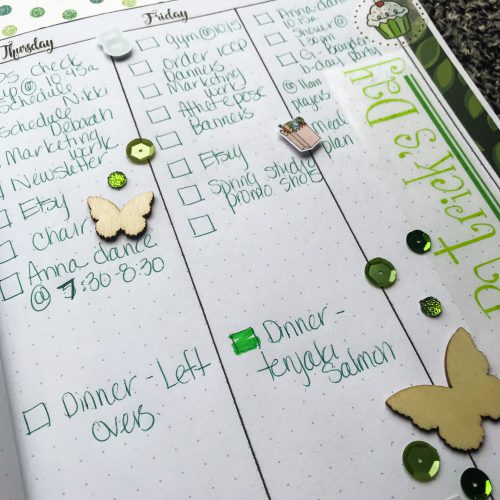 Thursday
check
@ 10:45a
schedule
schedule Nikki
Deborah
Marketing
work
Newsletter
Etsy
Chair
Anna dance
@ 7:30-8:30
Dinner - Left
overs
Friday
gym @ 10:15
Order ICCP
Banners
Marketing
work
Athol expose
Banners
Etsy
Spring studio
promo shots
Dinner -
teryaki
Salmon
Anna dance
10:15a
Shower @
1:30pm
bday party
@ 11am
players
Meal
plan
Patrick's Day